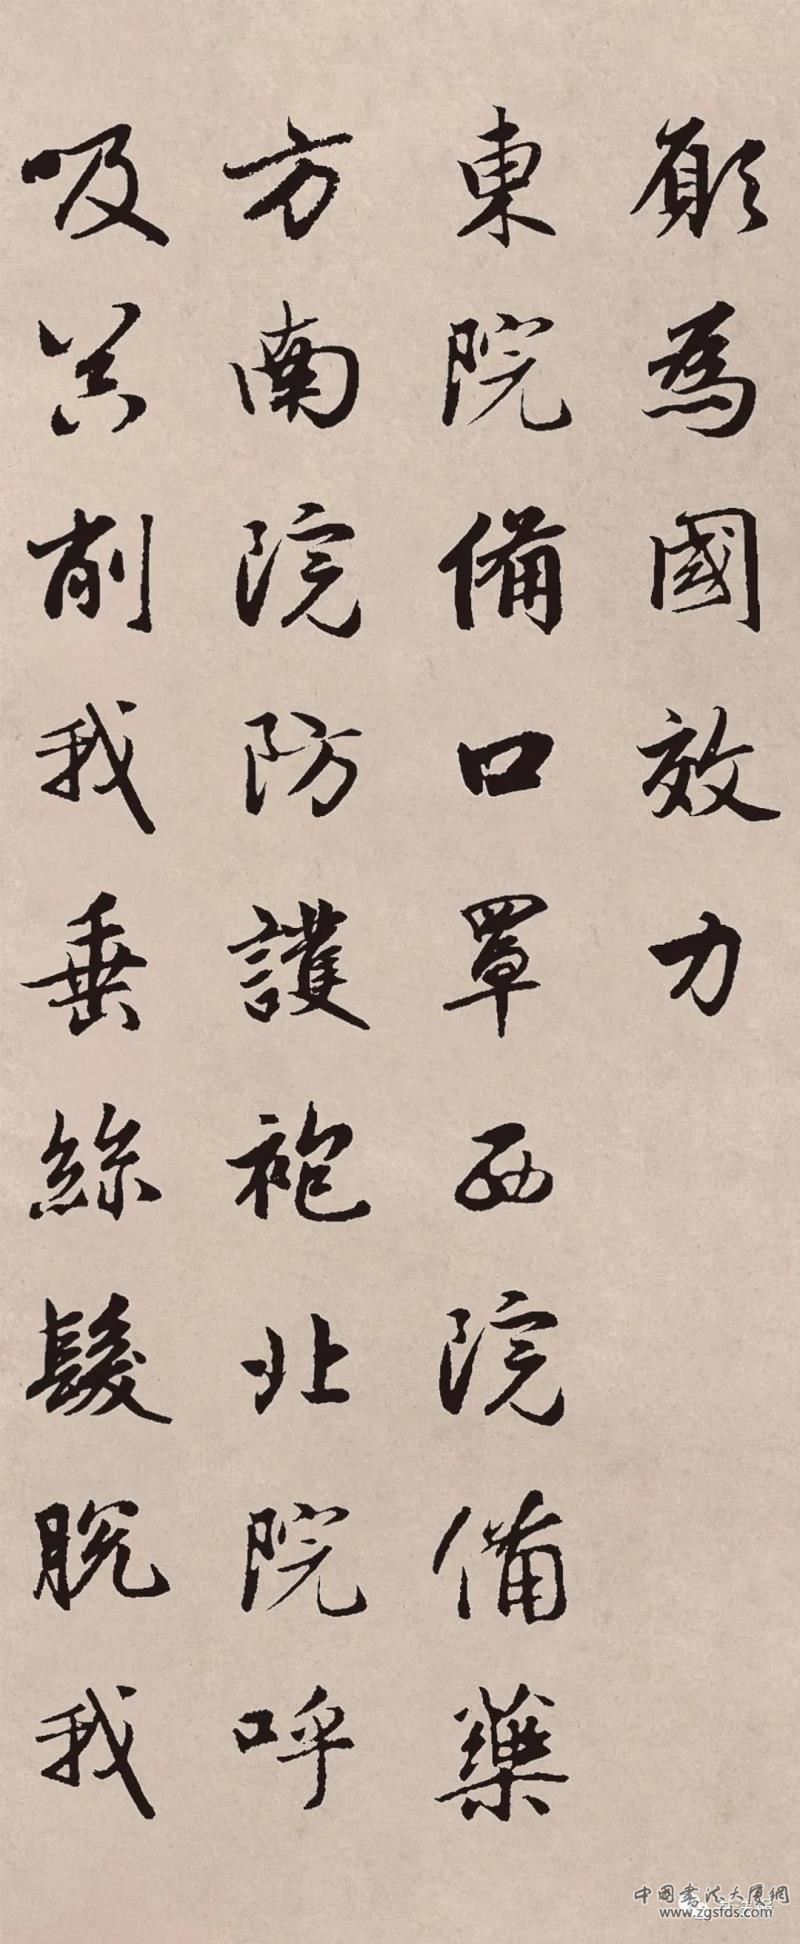 願為國效力
東院備口罩西院備藥
方南院防護袍北院呼
吸器削我垂絲髮脫我
中国书法大厦網
www.zgsfds.com